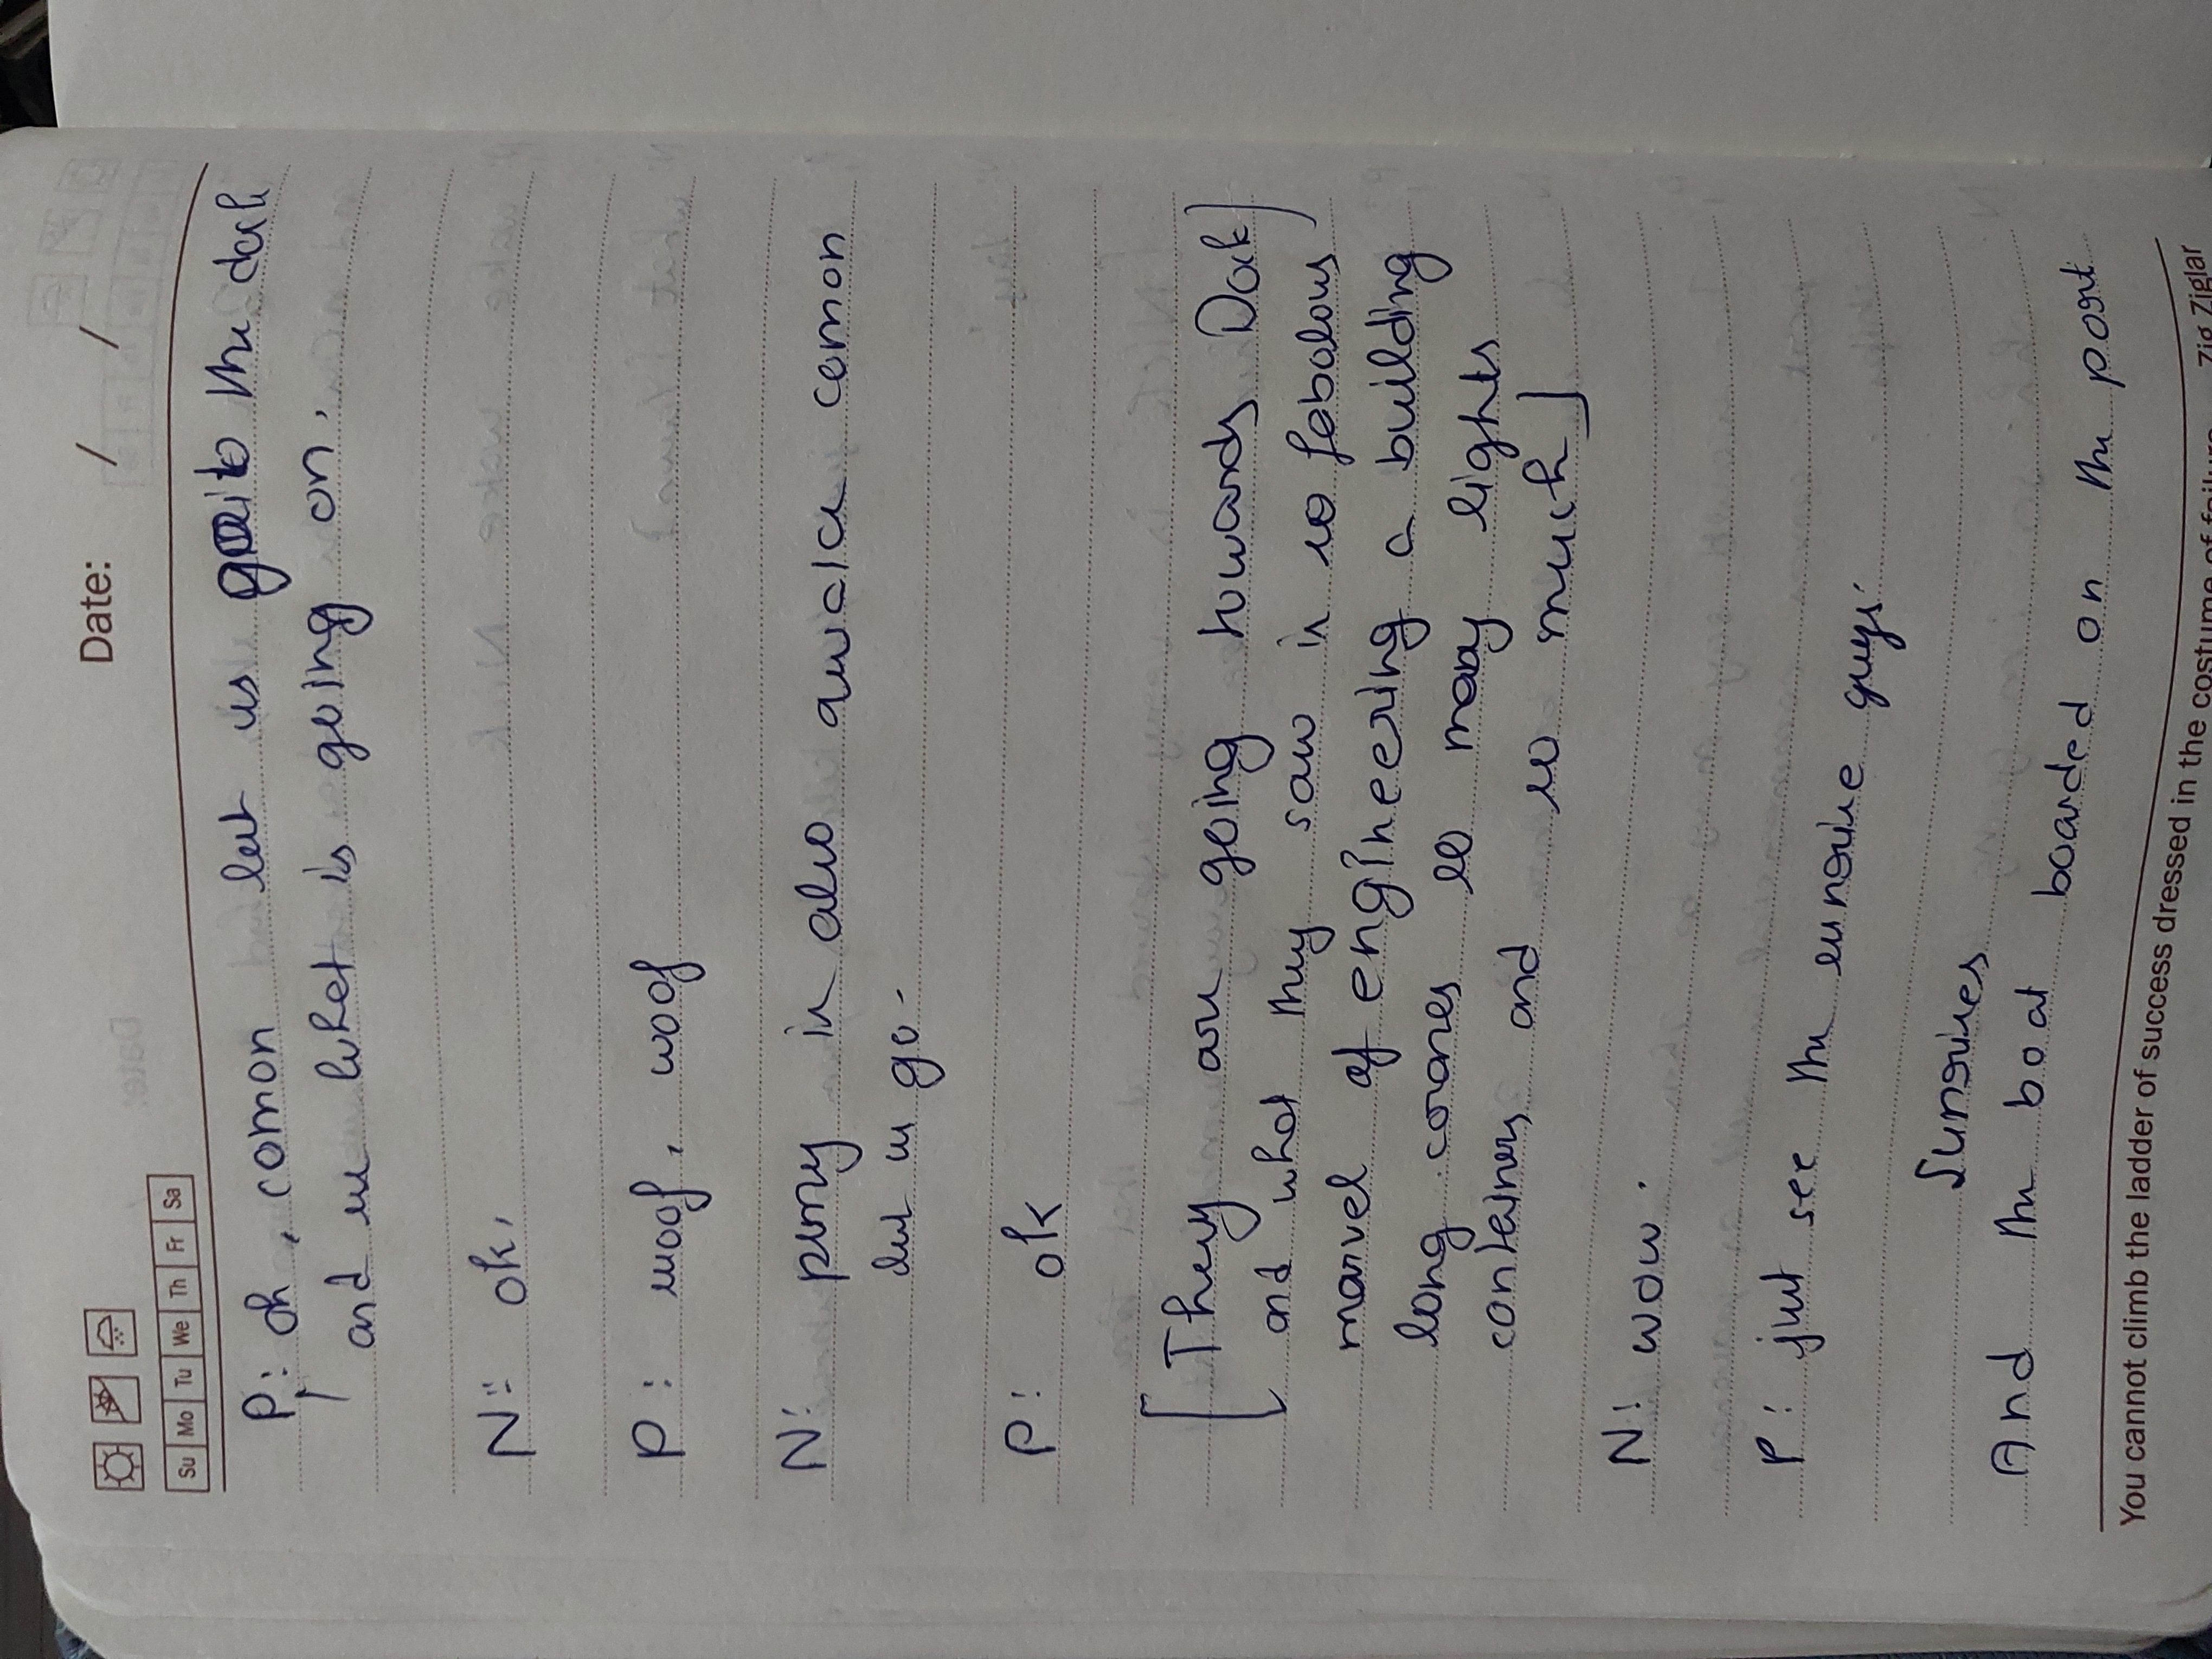 Date: / /
Su Mo Tu We Th Fr Sa
P: oh, comon let us go to the deck
and see what is going on.
N: ok,
P: woof, woof
N: perry is also awake comon
let us go-
P: ok
[They are going towards Dock]
and what they saw is so fabolous
marvel of engineering a building
long cranes so many lights
containers and so much]
N: wow.
P: just see the sunrise guys.
Sunrises
And the boat boarded on the port
You cannot climb the ladder of success dressed in the costume of failure
Zig Ziglar